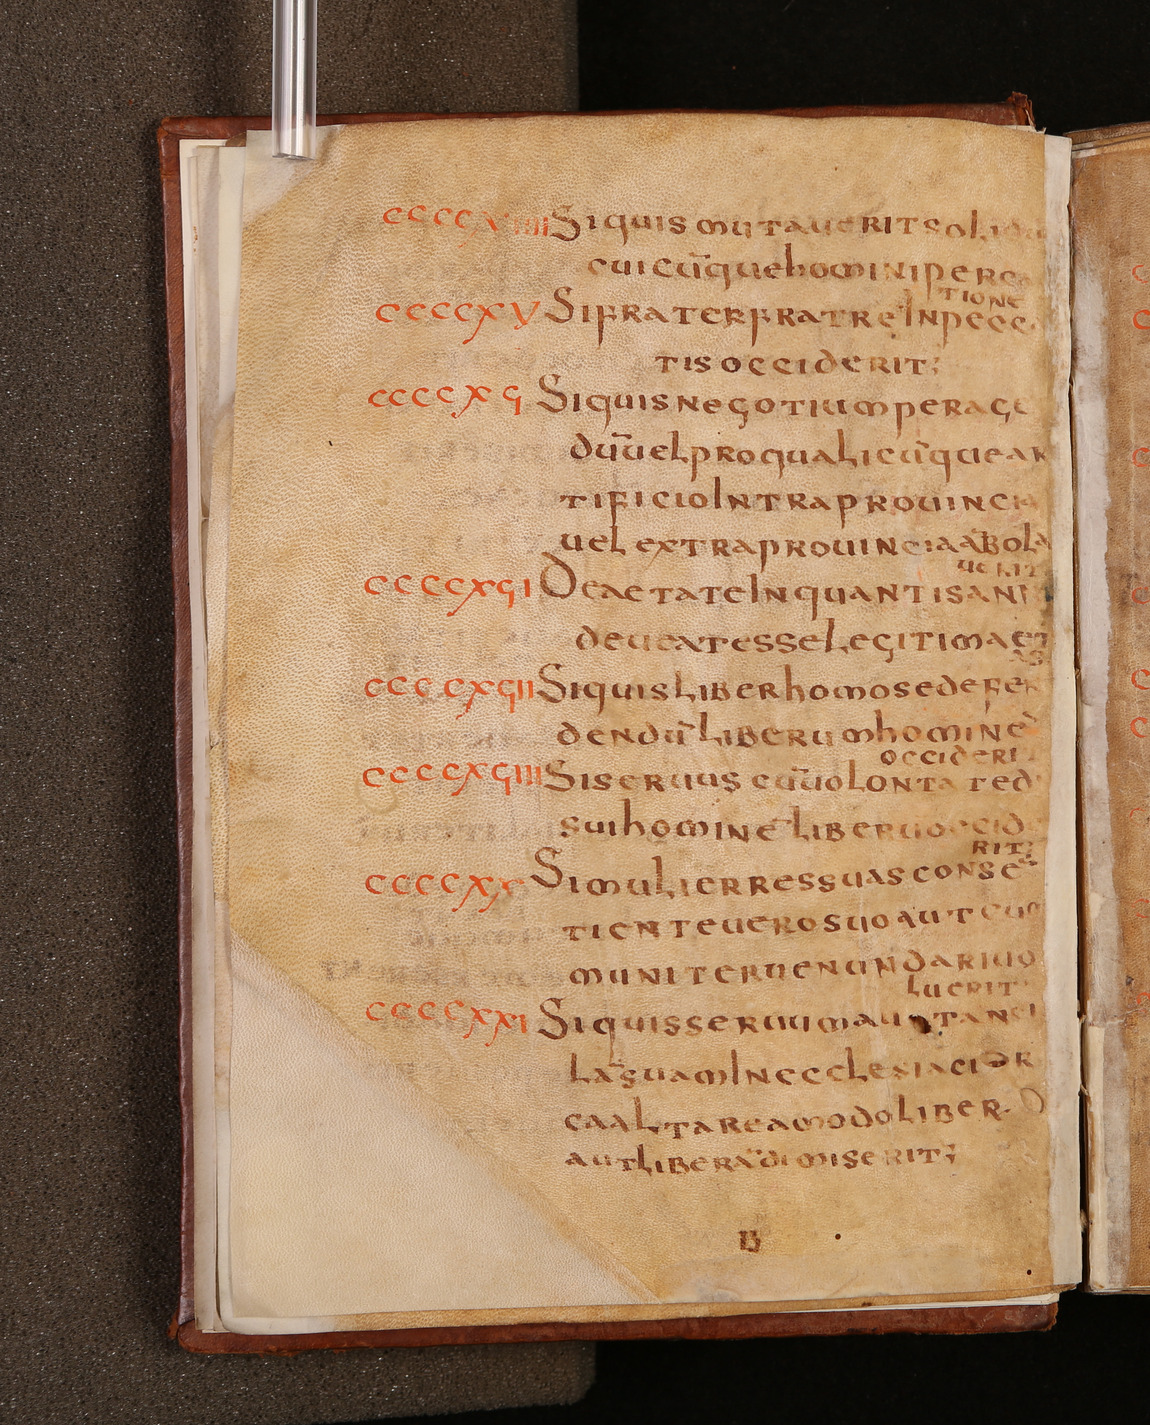 CCCCXIIII Siquis mutauerit solidu
cuicūque homini perce
CCCCXV Si frater fratre In pecca
tione
tis occiderit;
CCCCXϛ Siquis negotium perage
dū uel pro qualicūque ar
tificio Intra prouinci
uel extra prouincia āBola
uerit
CCCCXϛI De aetate In quantis an
debeat esse legitima et
as
CCCCXϛII Siquis liber homo se defen
dendū liberum homine
occiderit
CCCCXϛIII Si seruus cū uolontate d
sui homine liberuo occide
rit;
CCCCXX Si mulier res suas conse
tiente uero suo aut cum
muniter uenundari uo
luerit
CCCCXXI Siquis seruum aut anci
lā suam In ecclesia cir
ca altare amodo liber
aut liberā dimiserit;
B